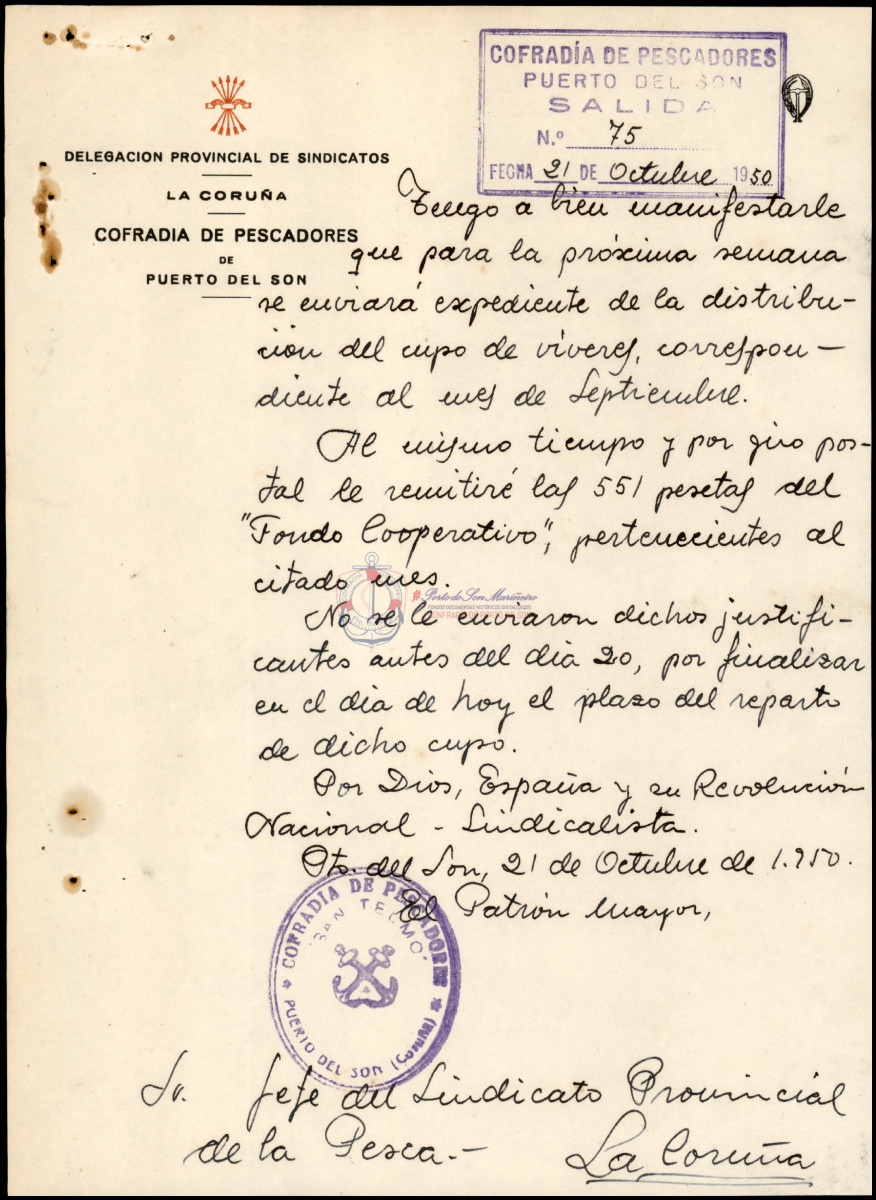 COFRADÍA DE PESCADORES
PUERTO DEL SON
SALIDA
N.º 75
FECHA 21 DE Octubre 1950
DELEGACION PROVINCIAL DE SINDICATOS
LA CORUÑA
COFRADIA DE PESCADORES
DE
PUERTO DEL SON
Tengo a bien manifestarle
que para la próxima semana
se enviará expediente de la distribu-
ción del cupo de víveres, correspon-
diente al mes de Septiembre.
Al mismo tiempo y por giro pos-
tal le remitiré las 551 pesetas del
"Fondo Cooperativo", pertenecientes al
citado mes.
#PortodoSonMariñeiro
No se le enviaron dichos justifi-
cantes antes del día 20, por finalizar
en el día de hoy el plazo del reparto
de dicho cupo.
Por Dios, España y su Revolución
Nacional-Sindicalista.
Pto. del Son, 21 de Octubre de 1.950.
El Patrón Mayor,
COFRADIA DE PESCADORES
"SAN TELMO"
PUERTO DEL SON (Coruña)
Sr. Jefe del Sindicato Provincial
de la Pesca.-
La Coruña